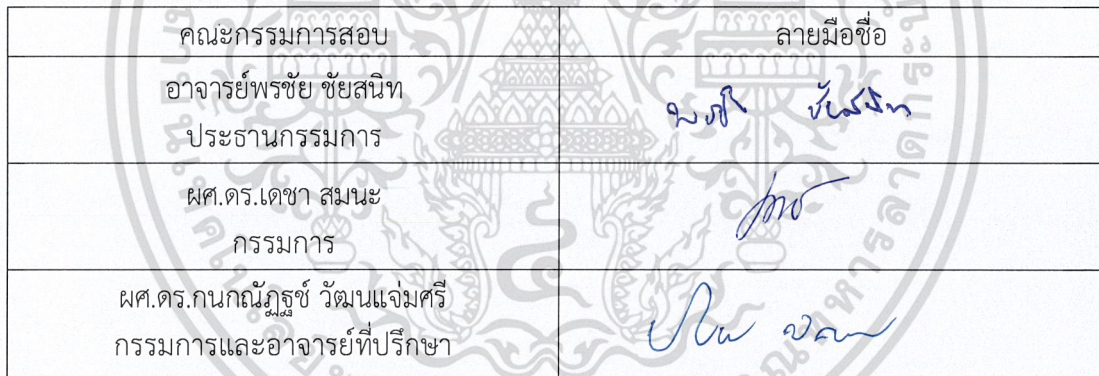 คณะกรรมการสอบ ลายมือชื่อ
อาจารย์พรชัย ชัยสนิท
ประธานกรรมการ
พรชัย ชัยสนิท
ผศ.ดร.เดชา สมนะ
กรรมการ
ผศ.ดร.กนกณัฏฐช์ วัฒนแจ่มศรี
กรรมการและอาจารย์ที่ปรึกษา